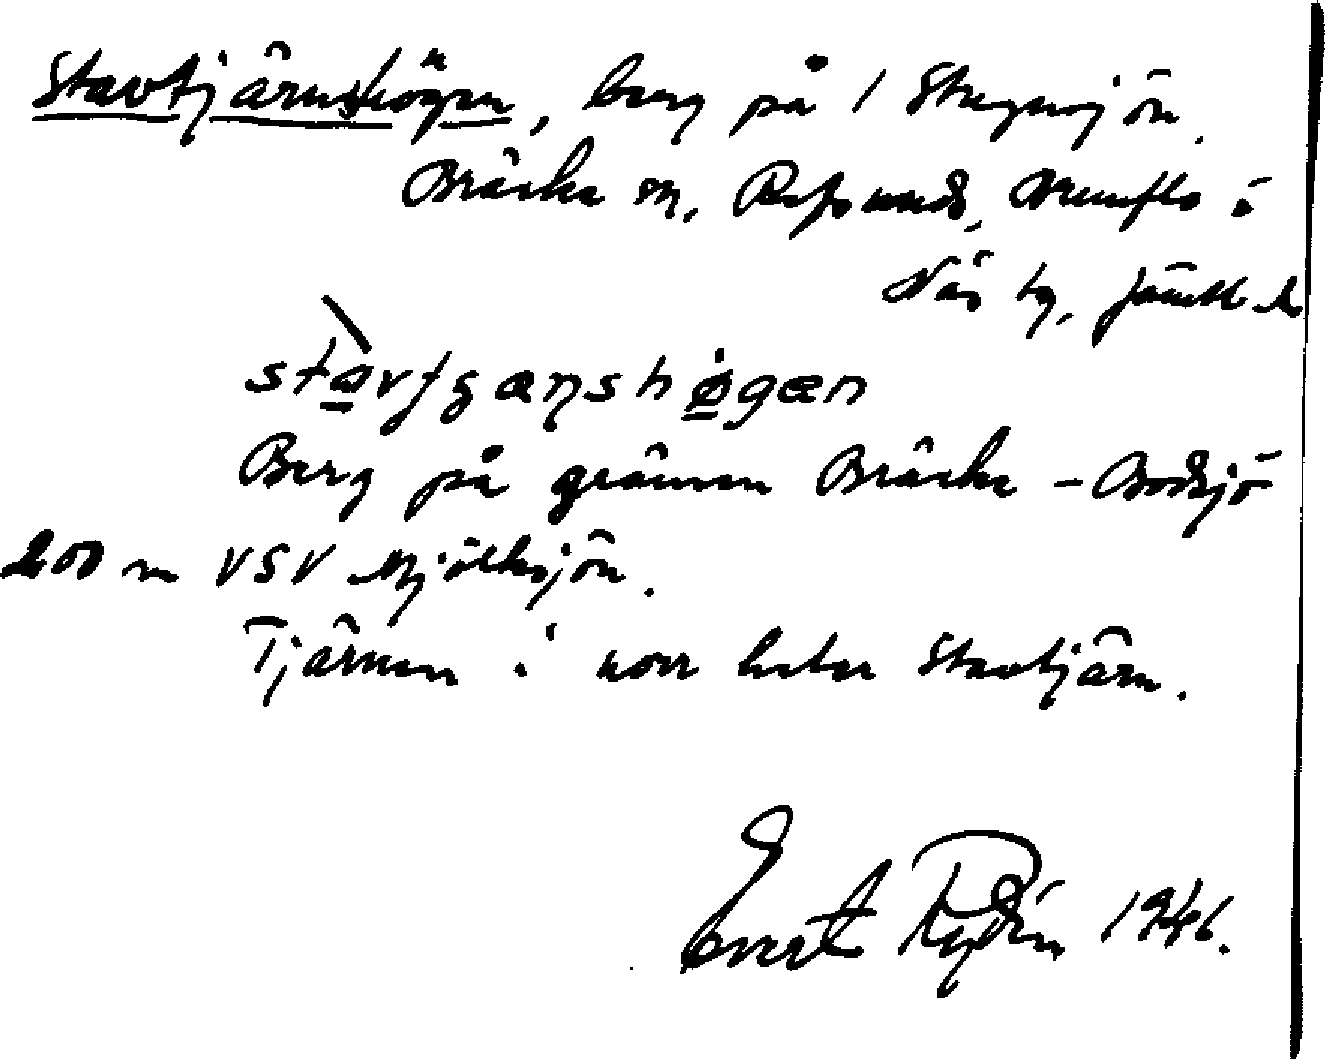 Stavtjärnshögen, berg på 1 Stugusjön.
Bräcke sn, Refsunds, Brunflo o
Näs tg, Jämtl. l.
stavtjæṇshøgæn
Berg på gränsen Bräcke – Bodsjö
200 m VSV Mjölksjön.
Tjärnen i norr heter Stavtjärn.
Evert Rydén 1946.